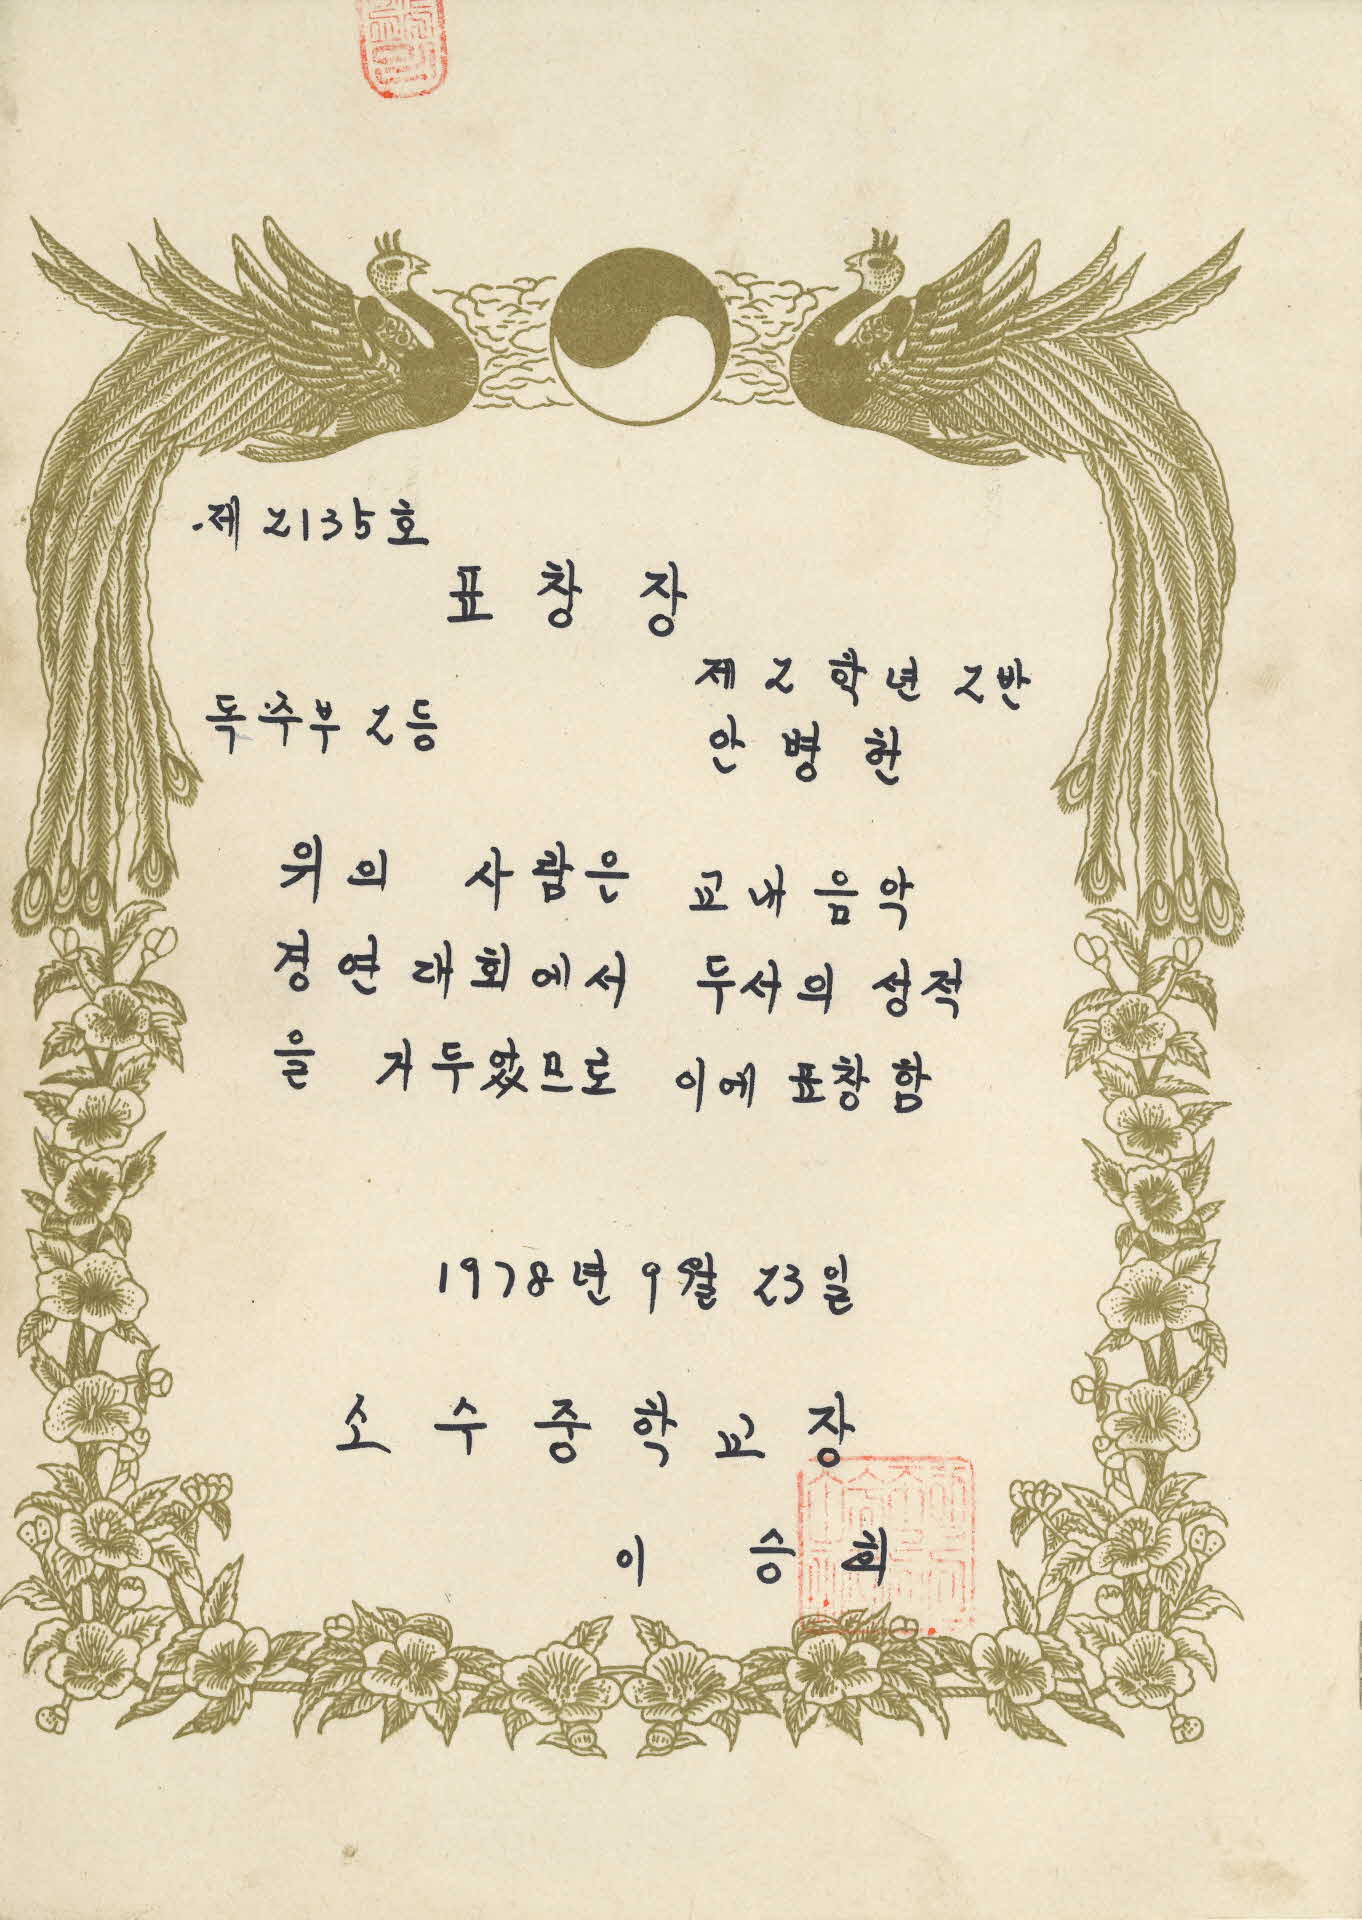 제 2135호
표창장
제 2 학년 2반
독주부 2등
안병헌
위의 사람은 교내 음악
경연대회에서 두사의 성적
을 거두었므로 이에 표창함
1978년 9월 23일
소수중학교장
이승희